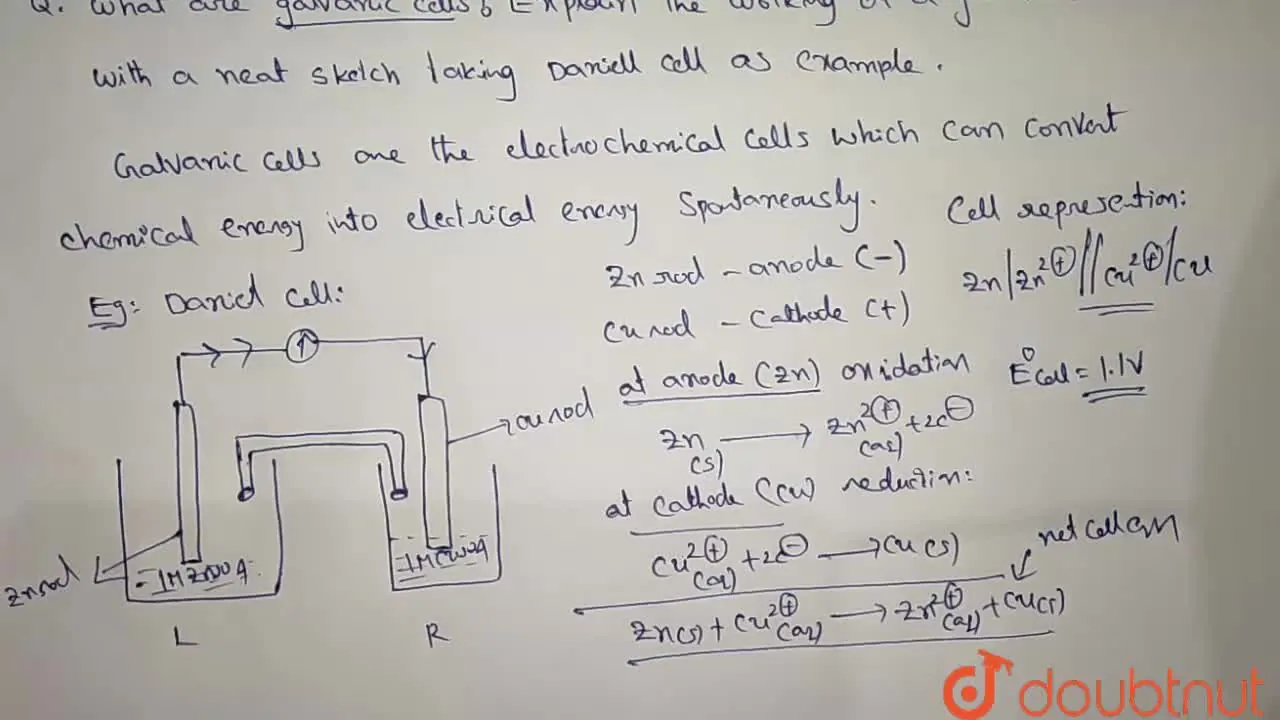 Q. What are galvanic cells? Explain the working of a g
with a neat sketch taking Daniell cell as example.
Galvanic cells are the electrochemical cells which can convert
chemical energy into electrical energy spontaneously.
Eg: Daniel cell:
Zn rod
1M ZnSO4
L
1M CuSO4
R
Cu rod
Zn rod - anode (-)
Cu rod - Cathode (+)
at anode (Zn) oxidation
Zn (s) → Zn2⊕ (aq) + 2e⊖
at cathode (Cu) reduction:
Cu2⊕ (aq) + 2e⊖ → Cu (s)
net cell rxn
Zn(s) + Cu2⊕ (aq) → Zn2⊕ (aq) + Cu(s)
Cell represention:
Zn/Zn2⊕//Cu2⊕/Cu
E°cell = 1.1V
doubtnut